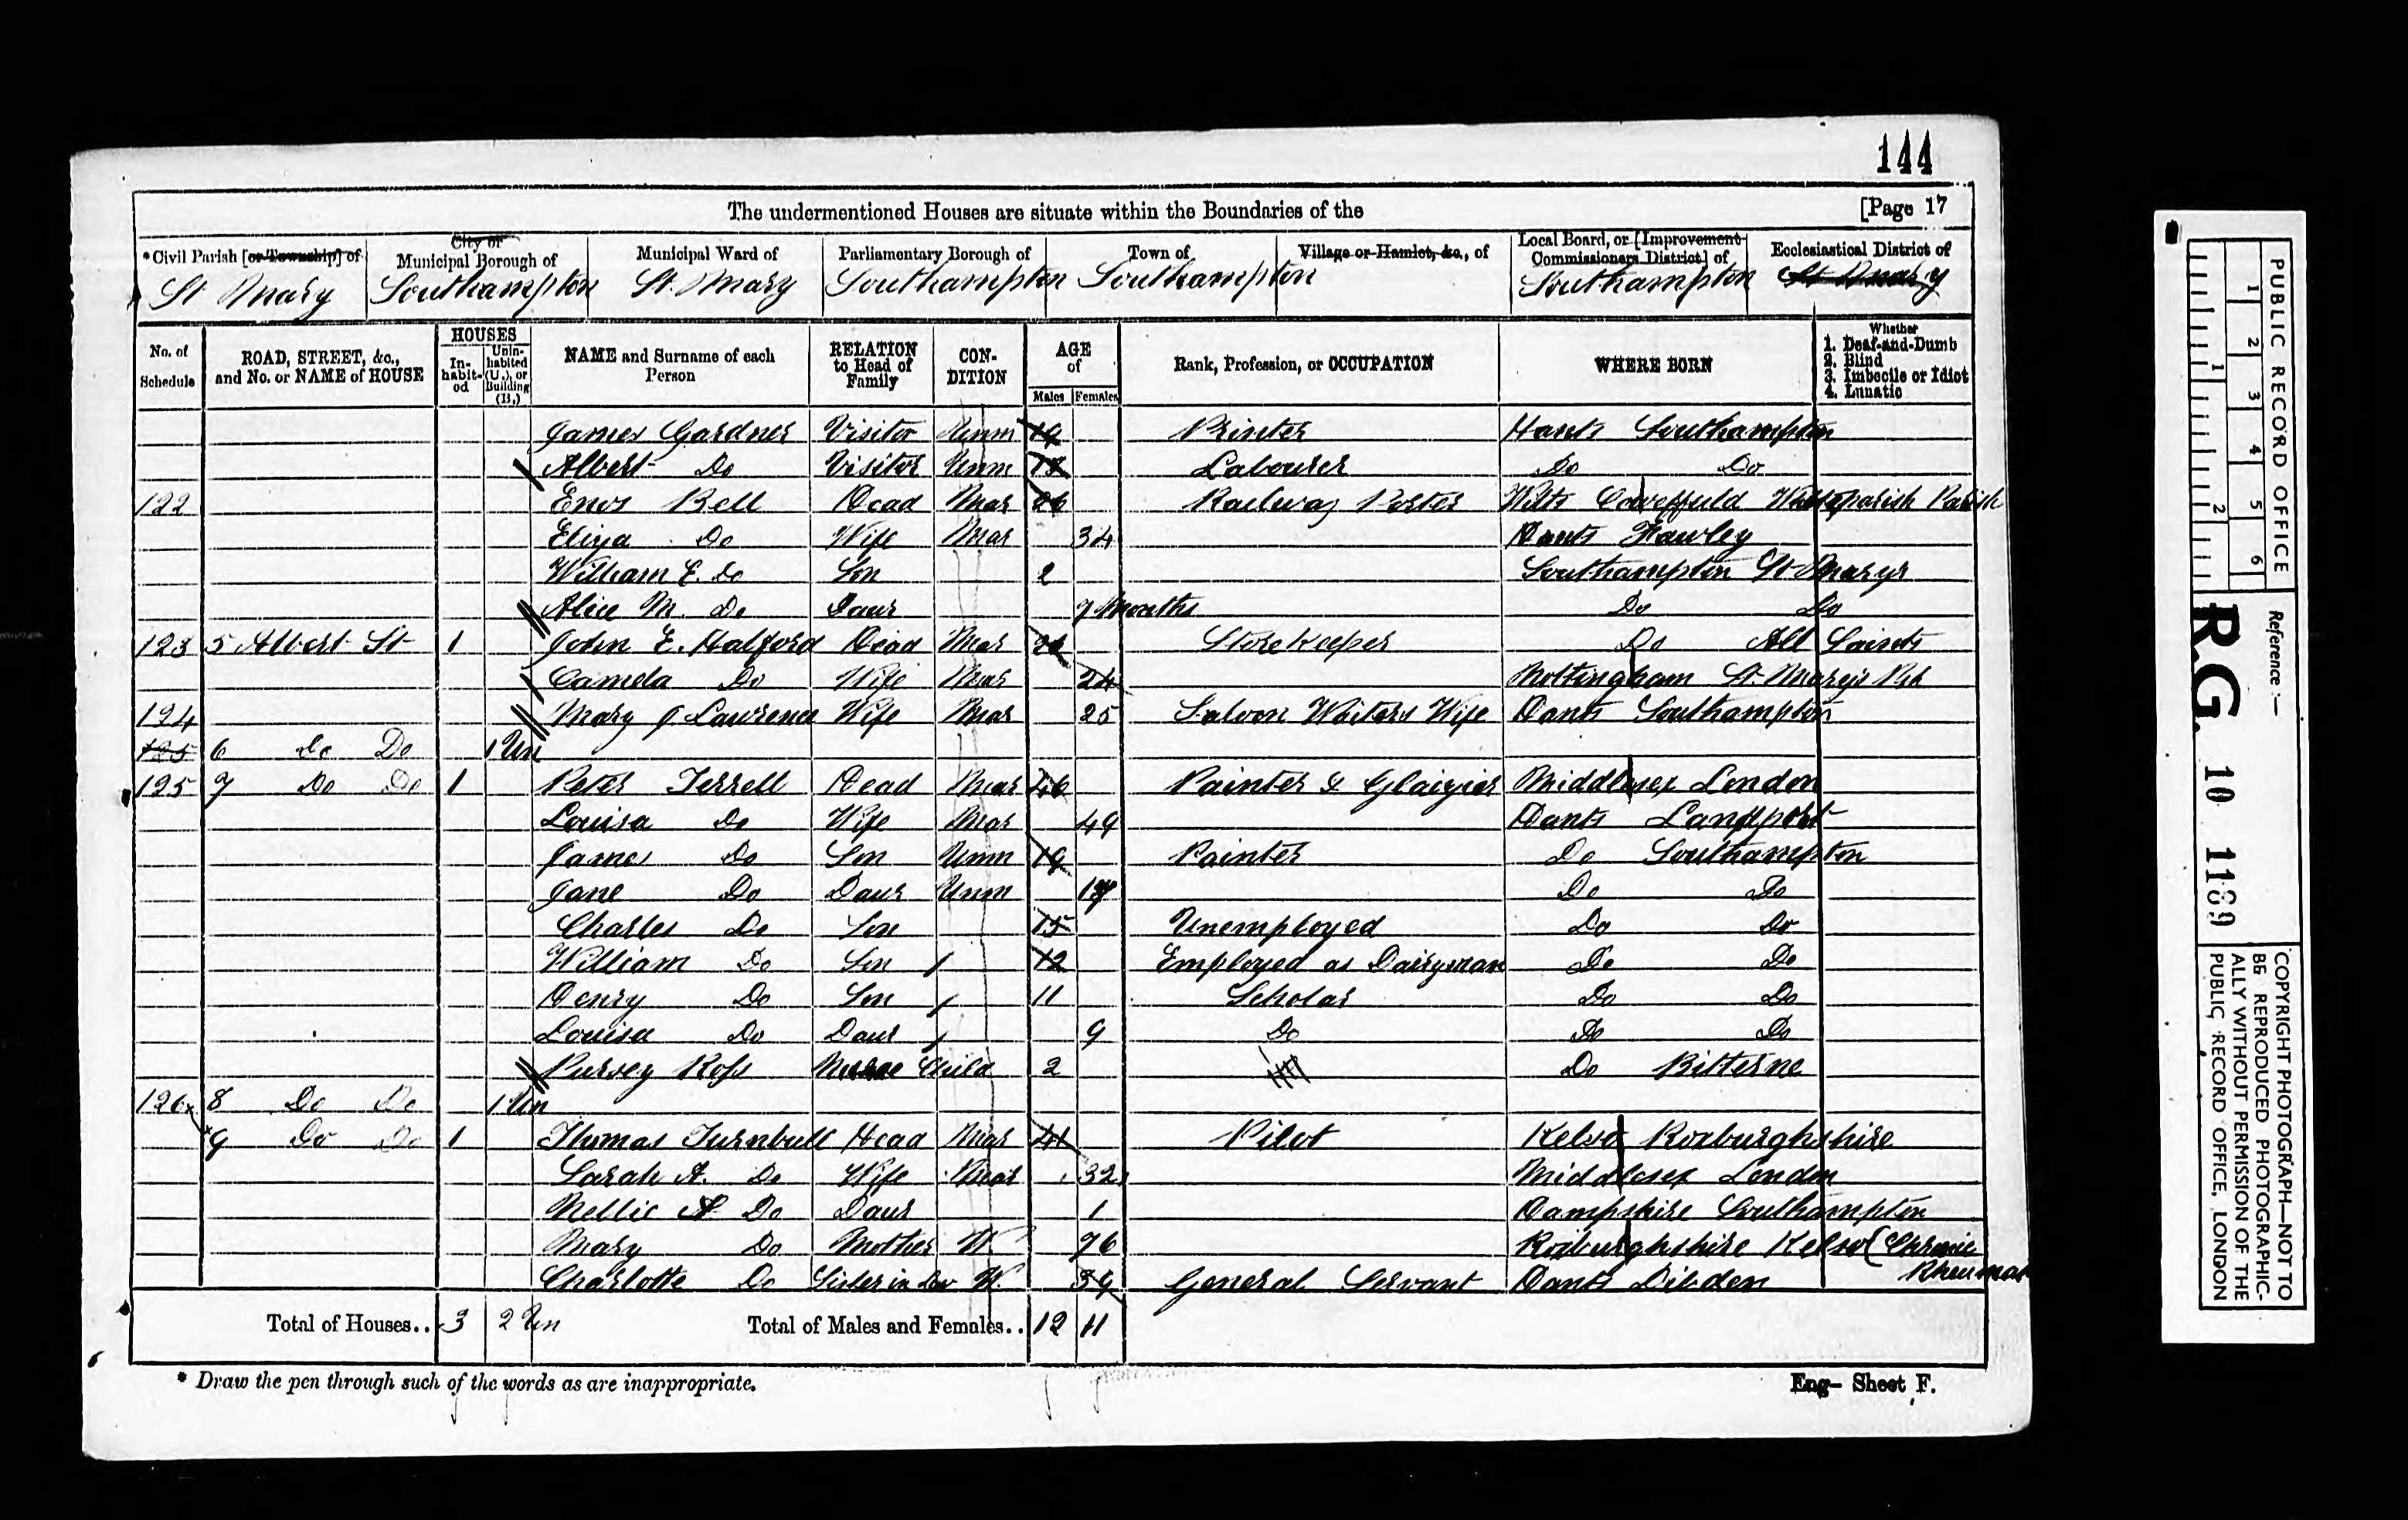 144
The undermentioned Houses are situate within the Boundaries of the [Page 17
*Civil Parish [or Township] of City or Municipal Borough of Municipal Ward of Parliamentary Borough of Town of Village or Hamlet, &c., of Local Board, or [Improvement Commissioners District] of Ecclesiastical District of
St Mary Southampton St. Mary Southampton Southampton Southampton St Mary
No. of Schedule ROAD, STREET, &c., and No. or NAME of HOUSE HOUSES In-habit-ed Unin-habited (U.), or Building (B.) NAME and Surname of each Person RELATION to Head of Family CON-DITION AGE of Males Females Rank, Profession, or OCCUPATION WHERE BORN Whether 1. Deaf-and-Dumb 2. Blind 3. Imbecile or Idiot 4. Lunatic
James Gardner Visitor Unm 19 Printer Hants Southampton
Albert Do Visitor Unm Labourer Do Do
122 Enos Bell Head Mar 26 Railway Porter Wilts Whiteparish Parish
Eliza Do Wife Mar 34 Hants Fawley
William E. Do Son 2 Southampton St Marys
Alice M. Do Daur 7 Months Do Do
123 5 Albert St 1 John E. Halford Head Mar Store Keeper Do All Saints
Camela Do Wife Mar 24 Nottingham St. Mary's Psh
124 Mary J Lawrence Wife Mar 25 Saloon Waiters Wife Hants Southampton
125 6 Do Do 1 Un
125 7 Do Do 1 Peter Terrell Head Mar 46 Painter & Glaizier Middlesex London
Louisa Do Wife Mar 49 Hants Landport
James Do Son Unm 19 Painter Do Southampton
Jane Do Daur Unm Do Do
Charles Do Son 15 Unemployed Do Do
William Do Son 12 Employed as Dairyman Do Do
Henry Do Son 11 Scholar Do Do
Louisa Do Daur 9 Do Do Do
Pursey Ross Nurse Child 2 Do Bitterne
126 8 Do Do 1 Un
9 Do Do 1 Thomas Turnbull Head Mar 41 Pilot Kelso Roxburghshire
Sarah A. Do Wife Mar 32 Middlesex London
Nellie A Do Daur 1 Hampshire Southampton
Mary Do Mother W. 76 Roxburghshire Kelso (Chronic
Charlotte Do Sister in Law W. 39 General Servant Hants Dibden Rheumat
Total of Houses.. 3 2 Un Total of Males and Females.. 12 11
* Draw the pen through such of the words as are inappropriate.
Eng- Sheet F.
PUBLIC RECORD OFFICE
1 2 3 4 5 6
1 2
Reference:-
R.G. 10 1189
COPYRIGHT PHOTOGRAPH—NOT TO BE REPRODUCED PHOTOGRAPHIC-ALLY WITHOUT PERMISSION OF THE PUBLIC RECORD OFFICE, LONDON